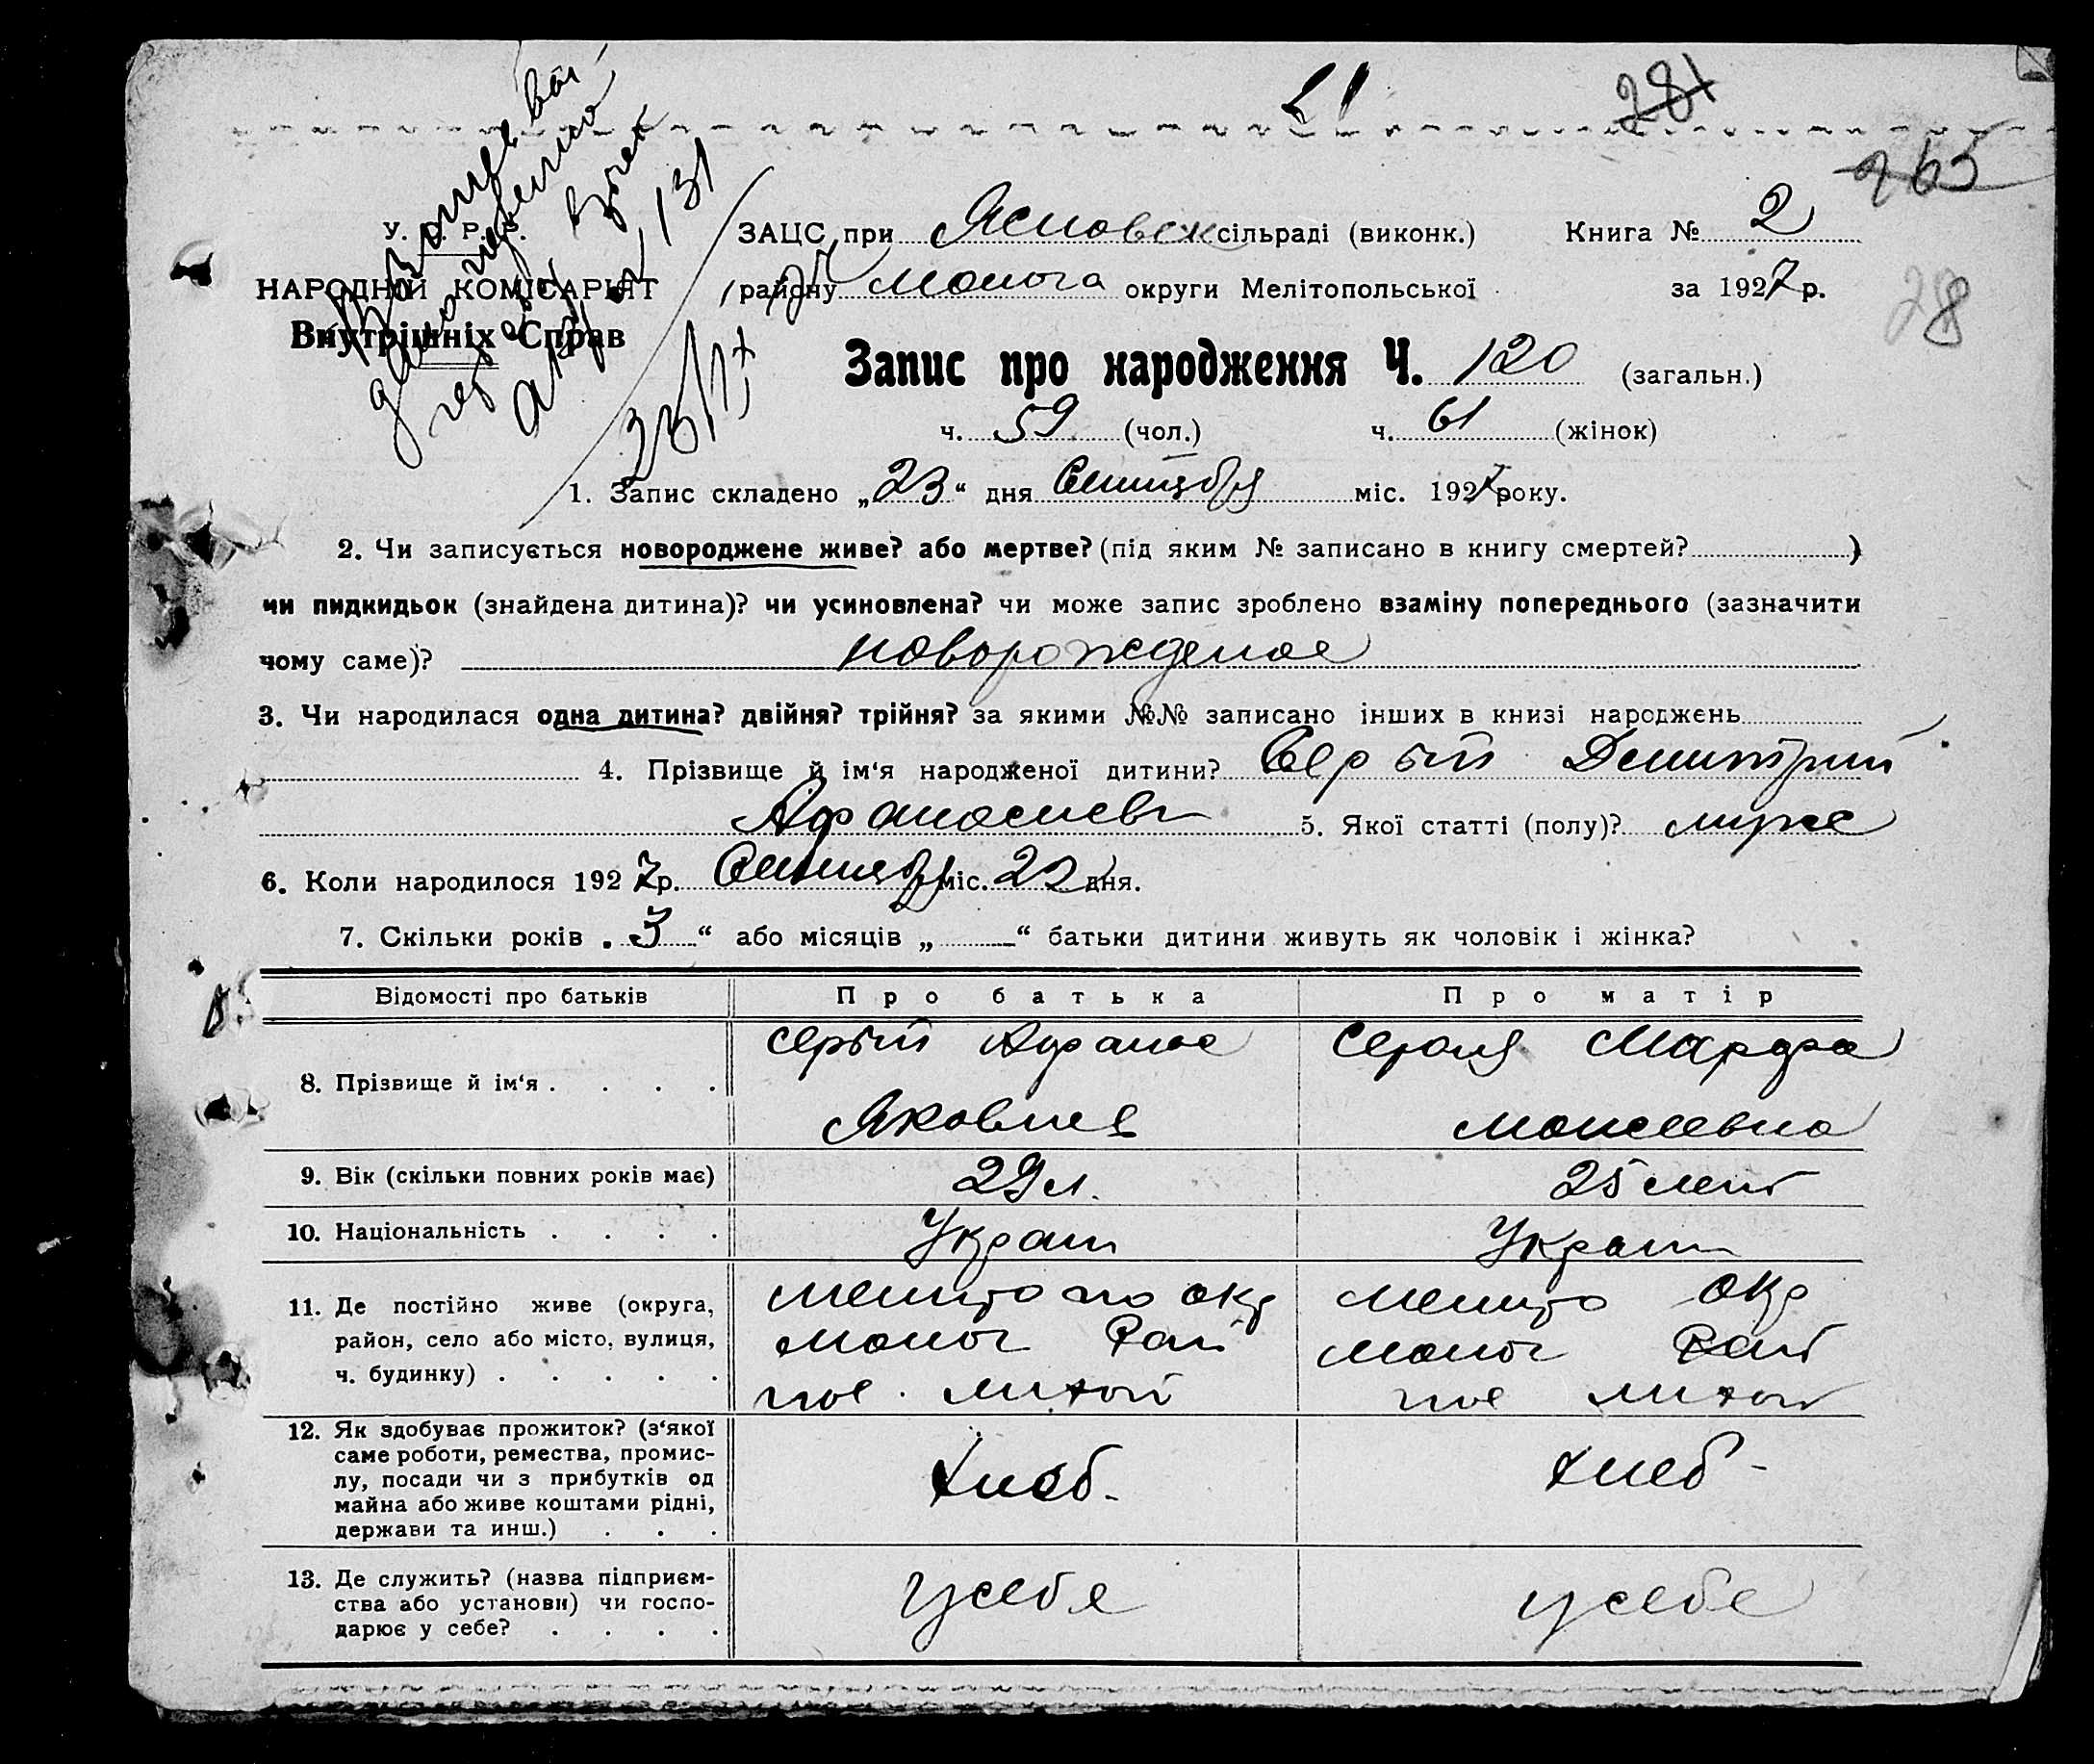 21
281
265
28
У. С. Р. Р.
НАРОДНІЙ КОМІСАРІЯТ
Внутрішніх Справ
ЗАЦС при Ясновск сільраді (виконк.) Книга № 2
району Молога округи Мелітопольської за 1927 р.
Запис про народження Ч. 120 (загальн.)
ч. 59 (чол.) ч. 61 (жінок)
1. Запис складено „23“ дня Сентября міс. 1927 року.
2. Чи записується новороджене живе? або мертве? (під яким № записано в книгу смертей? )
чи пидкидьок (знайдена дитина)? чи усиновлена? чи може запис зроблено взаміну попереднього (зазначити
чому саме)? новорожденое
3. Чи народилася одна дитина? двійня? трійня? за якими №№ записано інших в книзі народжень
4. Прізвище й ім‘я народженої дитини? Серый Дмитрий
Афанасиев 5. Якої статті (полу)? муже
6. Коли народилося 1927 р. Сентябр міс. 22 дня.
7. Скільки років „3“ або місяців „ “ батьки дитини живуть як чоловік і жінка?
Відомості про батьків Про батька Про матір
8. Прізвище й ім‘я . . . . Серый Афанас Серая Марфа
Яковлев Моисеевна
9. Вік (скільки повних років має) 29 л. 25 лет
10. Національність . . . . Украин Украин
11. Де постійно живе (округа, Мелитопо окр Мелито окр
район, село або місто, вулиця, Молог Рай Молог Рай
ч. будинку) . . . . . пос. Лихой пос Лихой
12. Як здобуває прожиток? (з‘якої
саме роботи, ремества, промис-
лу, посади чи з прибутків од Хлеб. Хлеб-
майна або живе коштами рідні,
держави та инш.) . . .
13. Де служить? (назва підприєм-
ства або установи) чи госпо- у себя у себе
дарює у себе? . . . .